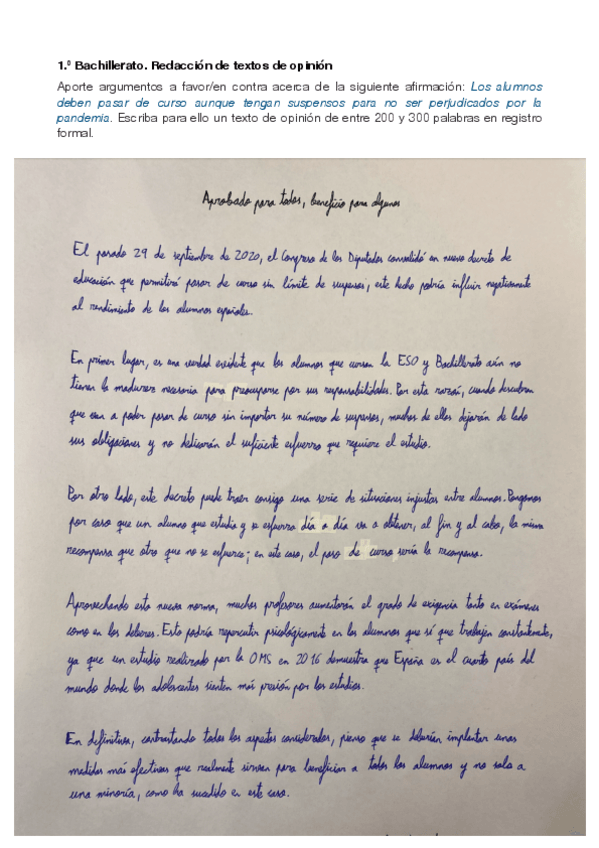 1.º Bachillerato. Redacción de textos de opinión
Aporte argumentos a favor/en contra acerca de la siguiente afirmación: Los alumnos
deben pasar de curso aunque tengan suspensos para no ser perjudicados por la
pandemia. Escriba para ello un texto de opinión de entre 200 y 300 palabras en registro
formal.
Aprobado para todos, beneficio para algunos
El pasado 29 de septiembre de 2020, el Congreso de los Diputados consolidó un nuevo decreto de
educación que permitirá pasar de curso sin límite de suspensos, este hecho podría influir negativamente
al rendimiento de los alumnos españoles.
En primer lugar, es una verdad evidente que los alumnos que cursan la ESO y Bachillerato aún no
tienen la madurez necesaria para preocuparse por sus responsabilidades. Por esta razón, cuando descubran
que van a poder pasar de curso sin importar su número de suspensos, muchos de ellos dejarán de lado
sus obligaciones y no dedicarán el suficiente esfuerzo que requiere el estudio.
Por otro lado, este decreto puede traer consigo una serie de situaciones injustas entre alumnos. Pongamos
por caso que un alumno que estudia y se esfuerza día a día va a obtener, al fin y al cabo, la misma
recompensa que otro que no se esfuerce; en este caso, el paso de curso sería la recompensa.
Aprovechando esta nueva norma, muchos profesores aumentarán el grado de exigencia tanto en exámenes
como en los deberes. Esto podría repercutir psicológicamente en los alumnos que sí que trabajen constantemente,
ya que un estudio realizado por la OMS en 2016 demuestra que España es el cuarto país del
mundo donde los adolescentes sienten más presión por los estudios.
En definitiva, contrastando todos los aspectos considerados, pienso que se deberían implantar unas
medidas más efectivas que realmente sirvan para beneficiar a todos los alumnos y no solo a
una minoría, como ha sucedido en este caso.